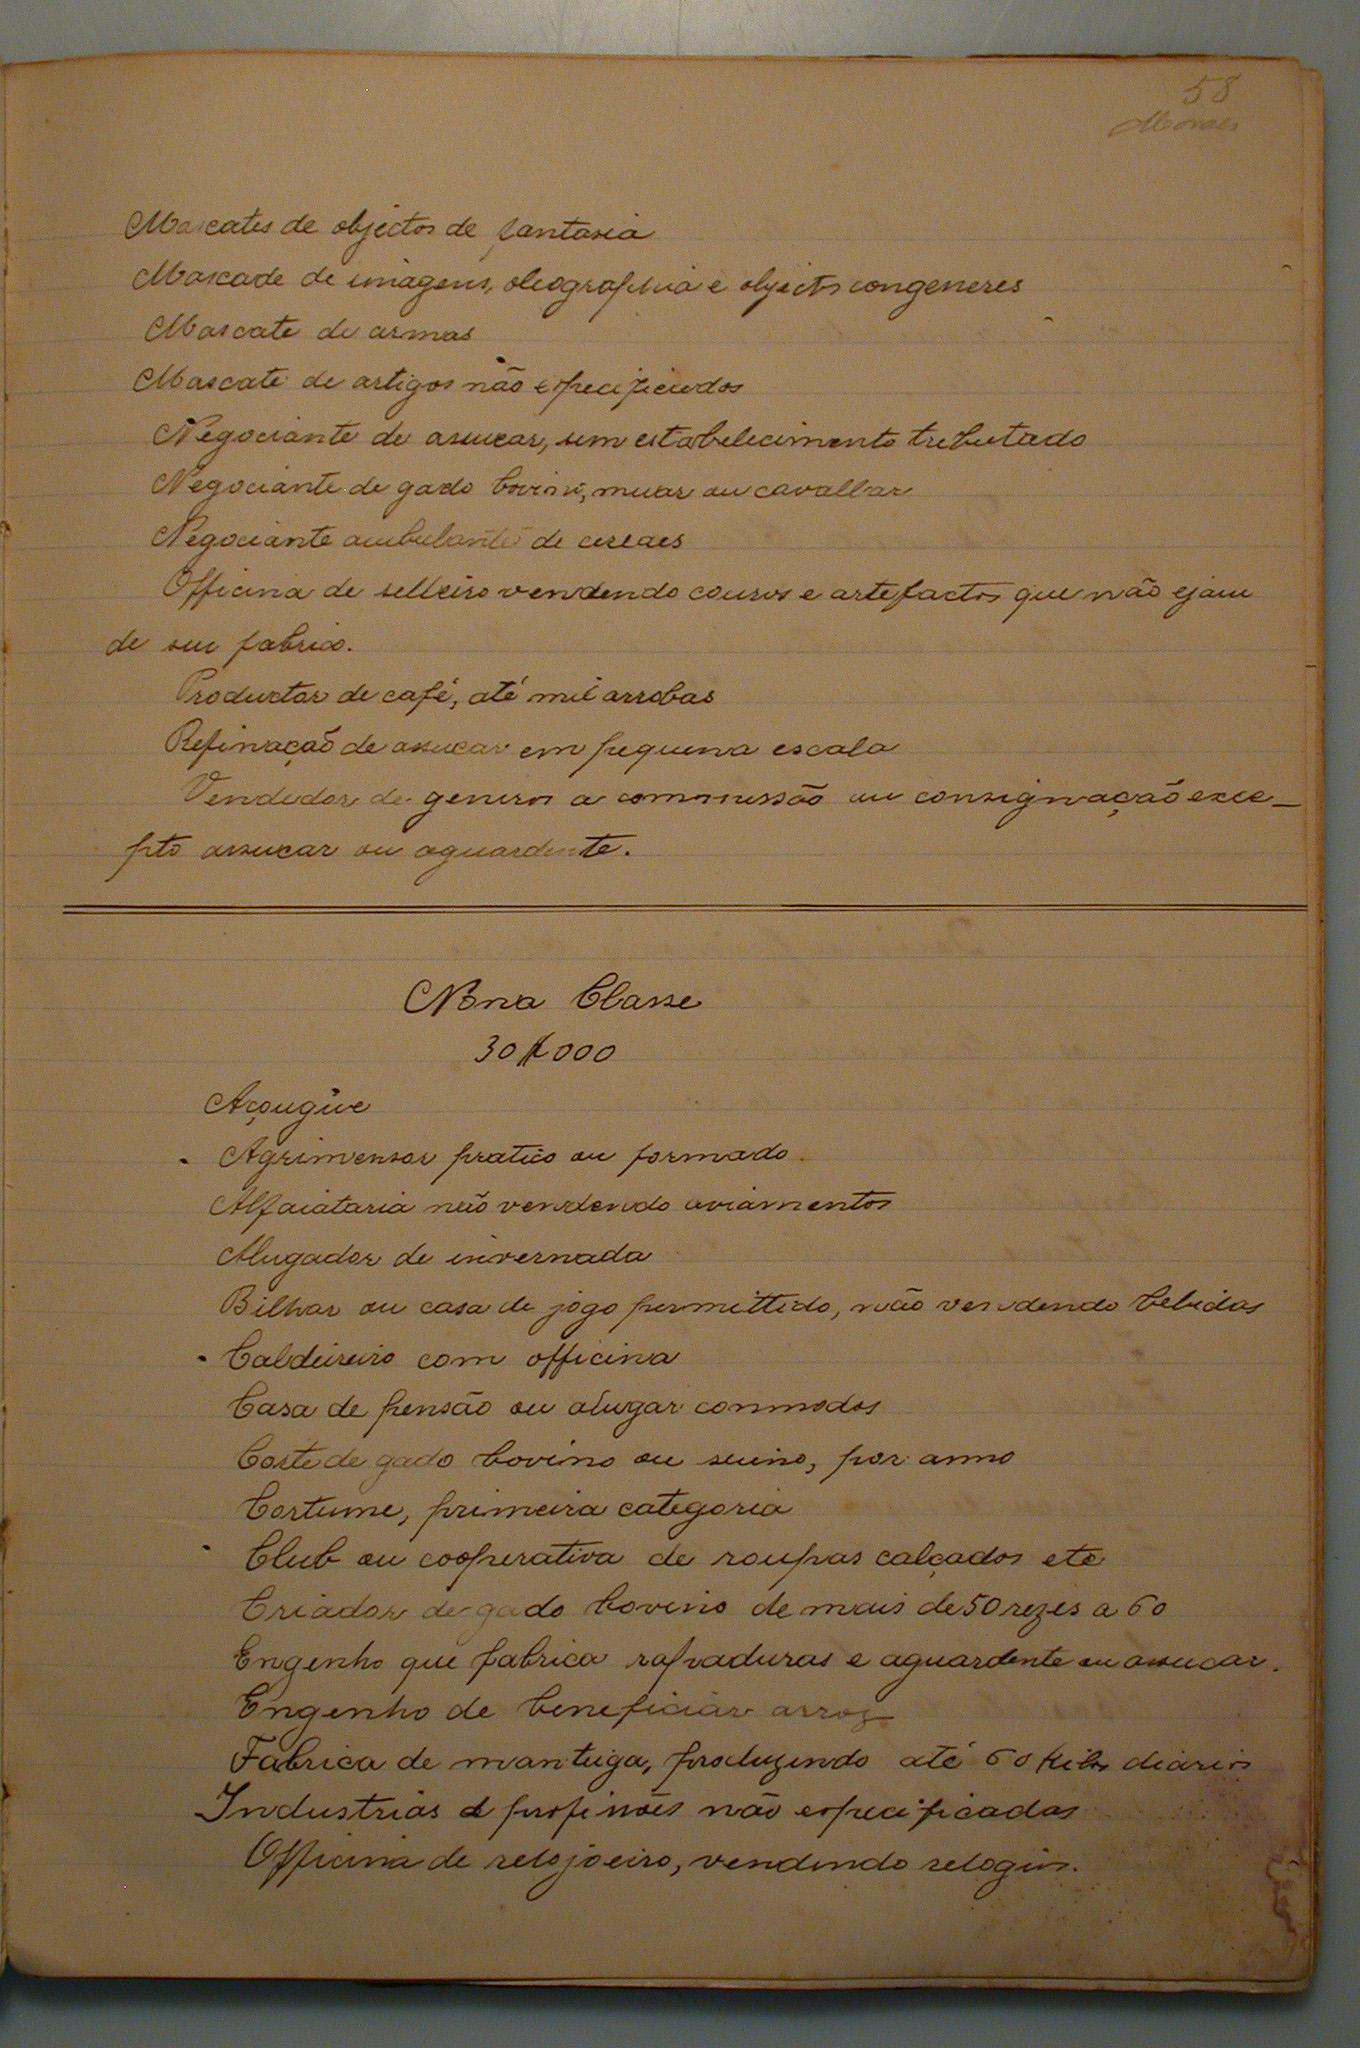 58
Moraes
Mascates de objectos de fantasia
Mascade de imagens, oleographia e objectos congeneres
Mascate de armas
Mascate de artigos não especificados
Negociante de assucar, sem estabelecimento tributado
Negociante de gado bovino, muar ou cavallar
Negociante ambulante de cereaes
Officina de selleiro vendendo couros e artefactos que não ejam
de seu fabrico.
Productor de café, até mil arrobas
Refinação de assucar em pequena escala
Vendedor de generos a commissão ou consignação exce-
pto assucar ou aguardente.
Nona Classe
30$000
Açougue
Agrimensor pratico ou formado.
Alfaiataria não vendendo aviamentos
Alugador de invernada
Bilhar ou casa de jogo permittido, não vendendo bebidas
Caldeireiro com officina
Casa de pensão ou alugar commodos
Corte de gado bovino ou suino, por anno
Cortume, primeira categoria
Club ou cooperativa de roupas calçados etc
Criador de gado bovino de mais de 50 rezes a 60
Engenho que fabrica rapaduras e aguardente ou assucar.
Engenho de beneficiar arroz
Fabrica de manteiga, produzindo até 60 kilos diarios
Industrias e profissões não especificadas
Officina de relojoeiro, vendendo relogios.